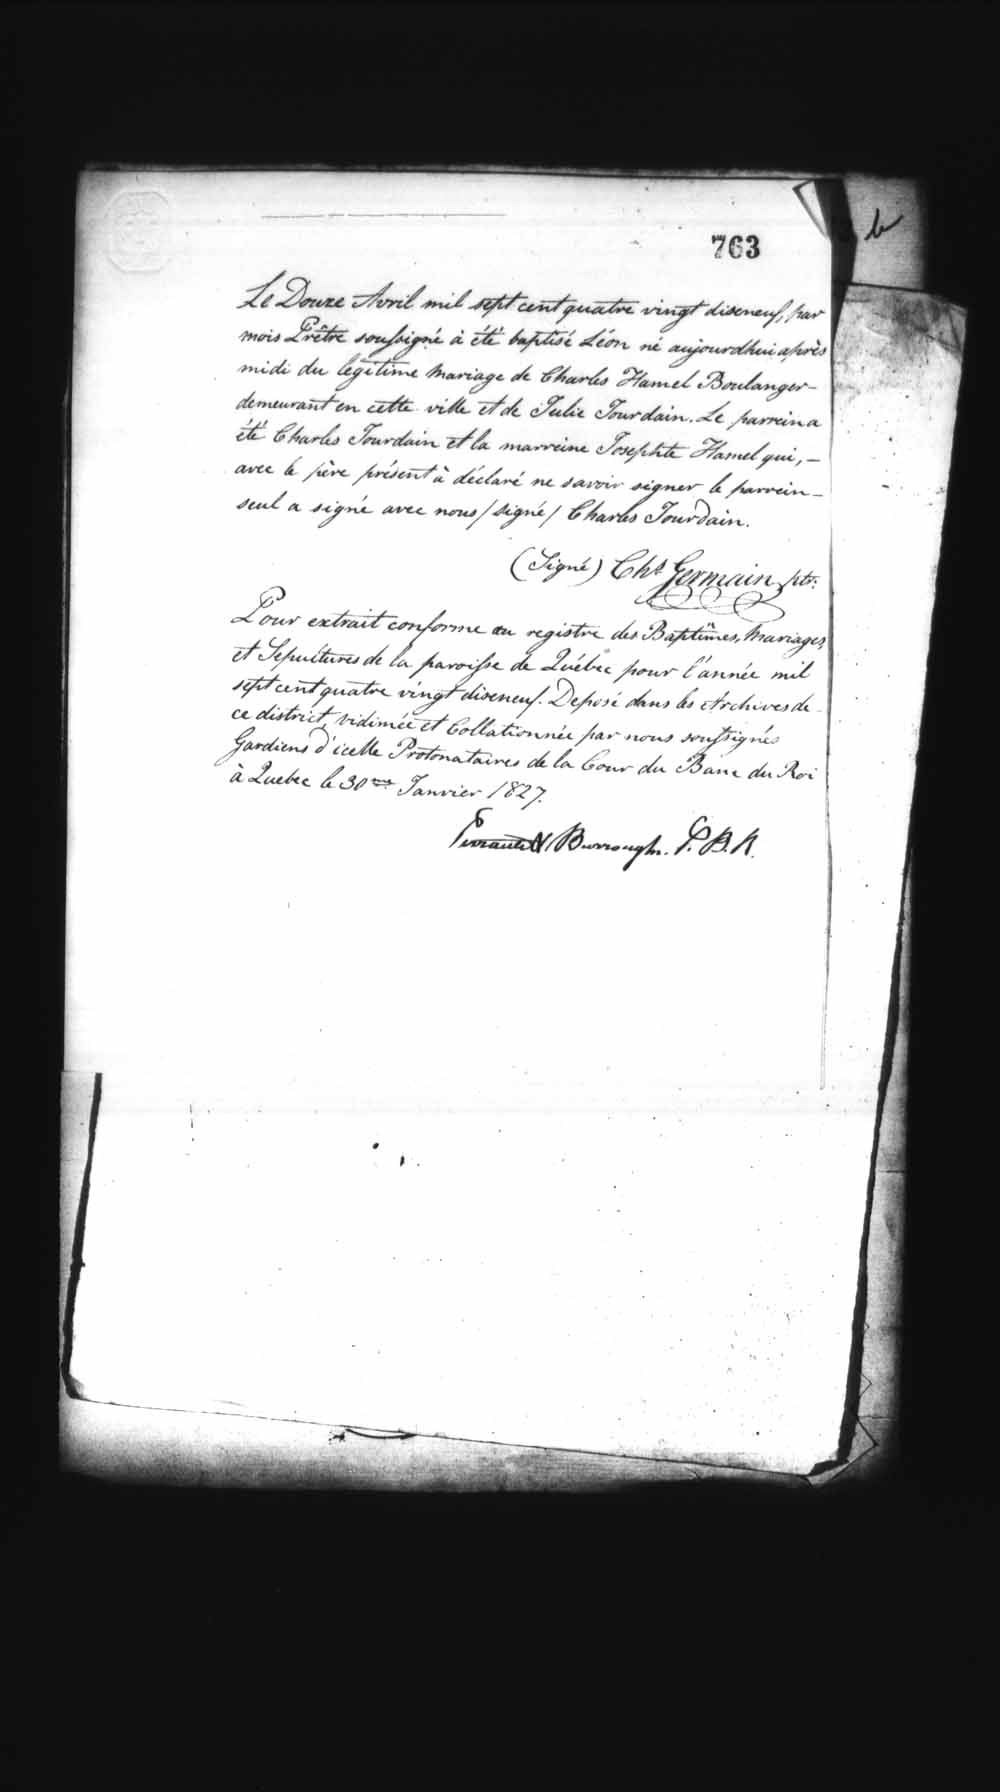 b
763
Le Douze Avril mil sept cent quatre vingt diseneuf, par
mois Prêtre soussigné à été baptisé Léon né aujourdhui après
midi du legitime mariage de Charles Hamel Boulanger-
demeurant en cette ville et de Julie Jourdain. Le parrein a
été Charles Jourdain et la marreine Josephte Hamel qui, -
avec le père présent à déclaré ne savoir signer le parrein -
seul a signé avec nous / signé / Charles Jourdain.
(Signé) Chs Germain ptr:
Pour extrait conforme au registre des Baptêmes, Mariages,
et Sepultures de la paroisse de Québec pour l'année mil
sept cent quatre vingt diseneuf. Deposé dans les Archives de
ce district, vidimée et Collationnée par nous soussignés
Gardiens d'icelle Protonataires de la Cour du Banc du Roi
à Quebec le 30me Janvier 1827.
Perrault & Burroughs. P. B. R.